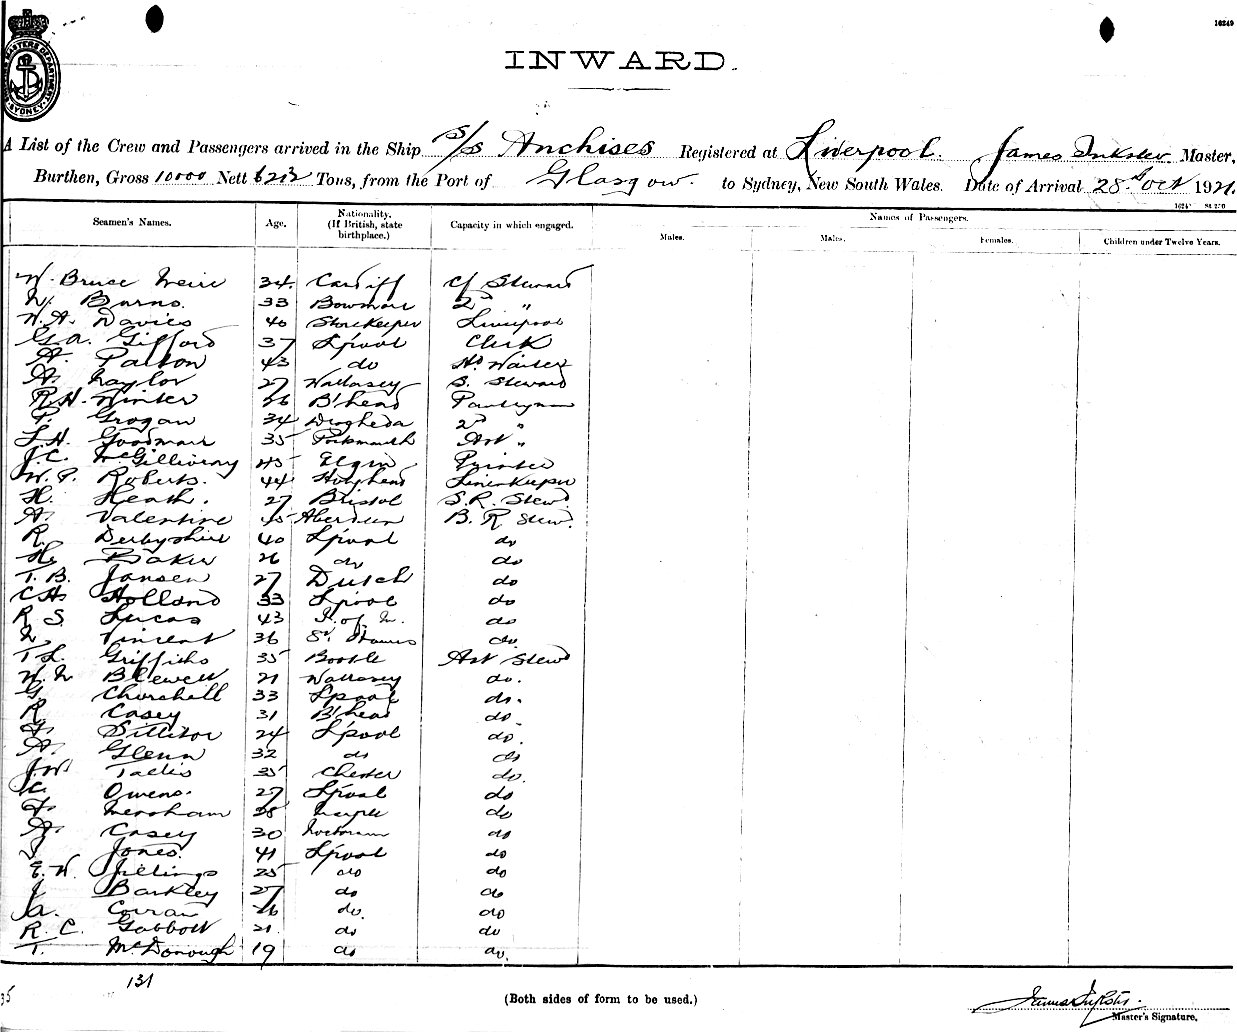 SHIPPING MASTERS DEPARTMENT SYDNEY
16249
INWARD.
A List of the Crew and Passengers arrived in the Ship S/S Anchises Registered at Liverpool. James Inkster Master,
Burthen, Gross 10000 Nett 6203 Tons, from the Port of Glasgow. to Sydney, New South Wales. Date of Arrival 28th Oct 1921.
Seamen's Names. Age. Nationality, (If British, state birthplace.) Capacity in which engaged. Names of Passengers.
Males. Males. Females. Children under Twelve Years.
W. Bruce Weir 34 Cardiff Cf Steward
Burns. 33 2d "
W. A. Davies 40 Storekeeper Liverpool
G. A. Gifford 37 L'pool Clerk
A. Patton 43 do Hd Waiter
A. Naylor 27 Wallasey S. Steward
R. H. Winter 26 B'head Pantryman
P. Grogan 34 Drogheda 2d "
L. H. Goodman 35 Portsmouth Ast "
J. C. McGillivray 45 Elgin Printer
W. P. Roberts. 44 Holyhead Linenkeeper
H. Heath. 27 Bristol S. R. Stewd
A. Valentine 45 Aberdeen B. R Stew.
R. Derbyshire 40 L'pool do
H. Baker 26 do do
T. B. Jansen 27 Dutch do
C H Holland 33 L'pool do
R S. Lucas 43 I. of M. do
Vincent 36 do
T L. Griffiths 35 Bootle Ast Stewd
W. Blewett 21 Wallasey do.
G. Churchell 33 L'pool do.
R Casey 31 B'head do
F. Sillitor 24 L'pool do.
A. Glenn 32 do do
J. W. Tallis 35 Chester do.
C. Owens. 27 L'pool do
F. Mersham 28 do
A. Casey 30 do
J Jones. 41 L'pool do
E. W. Jillings 25 do do
J Barkley 27 do do
A. Corran 26 do. do
R. C. Gabbott 21. do do
T. McDonough 19 do do.
131
35
(Both sides of form to be used.)
James Inkster.
Master's Signature.